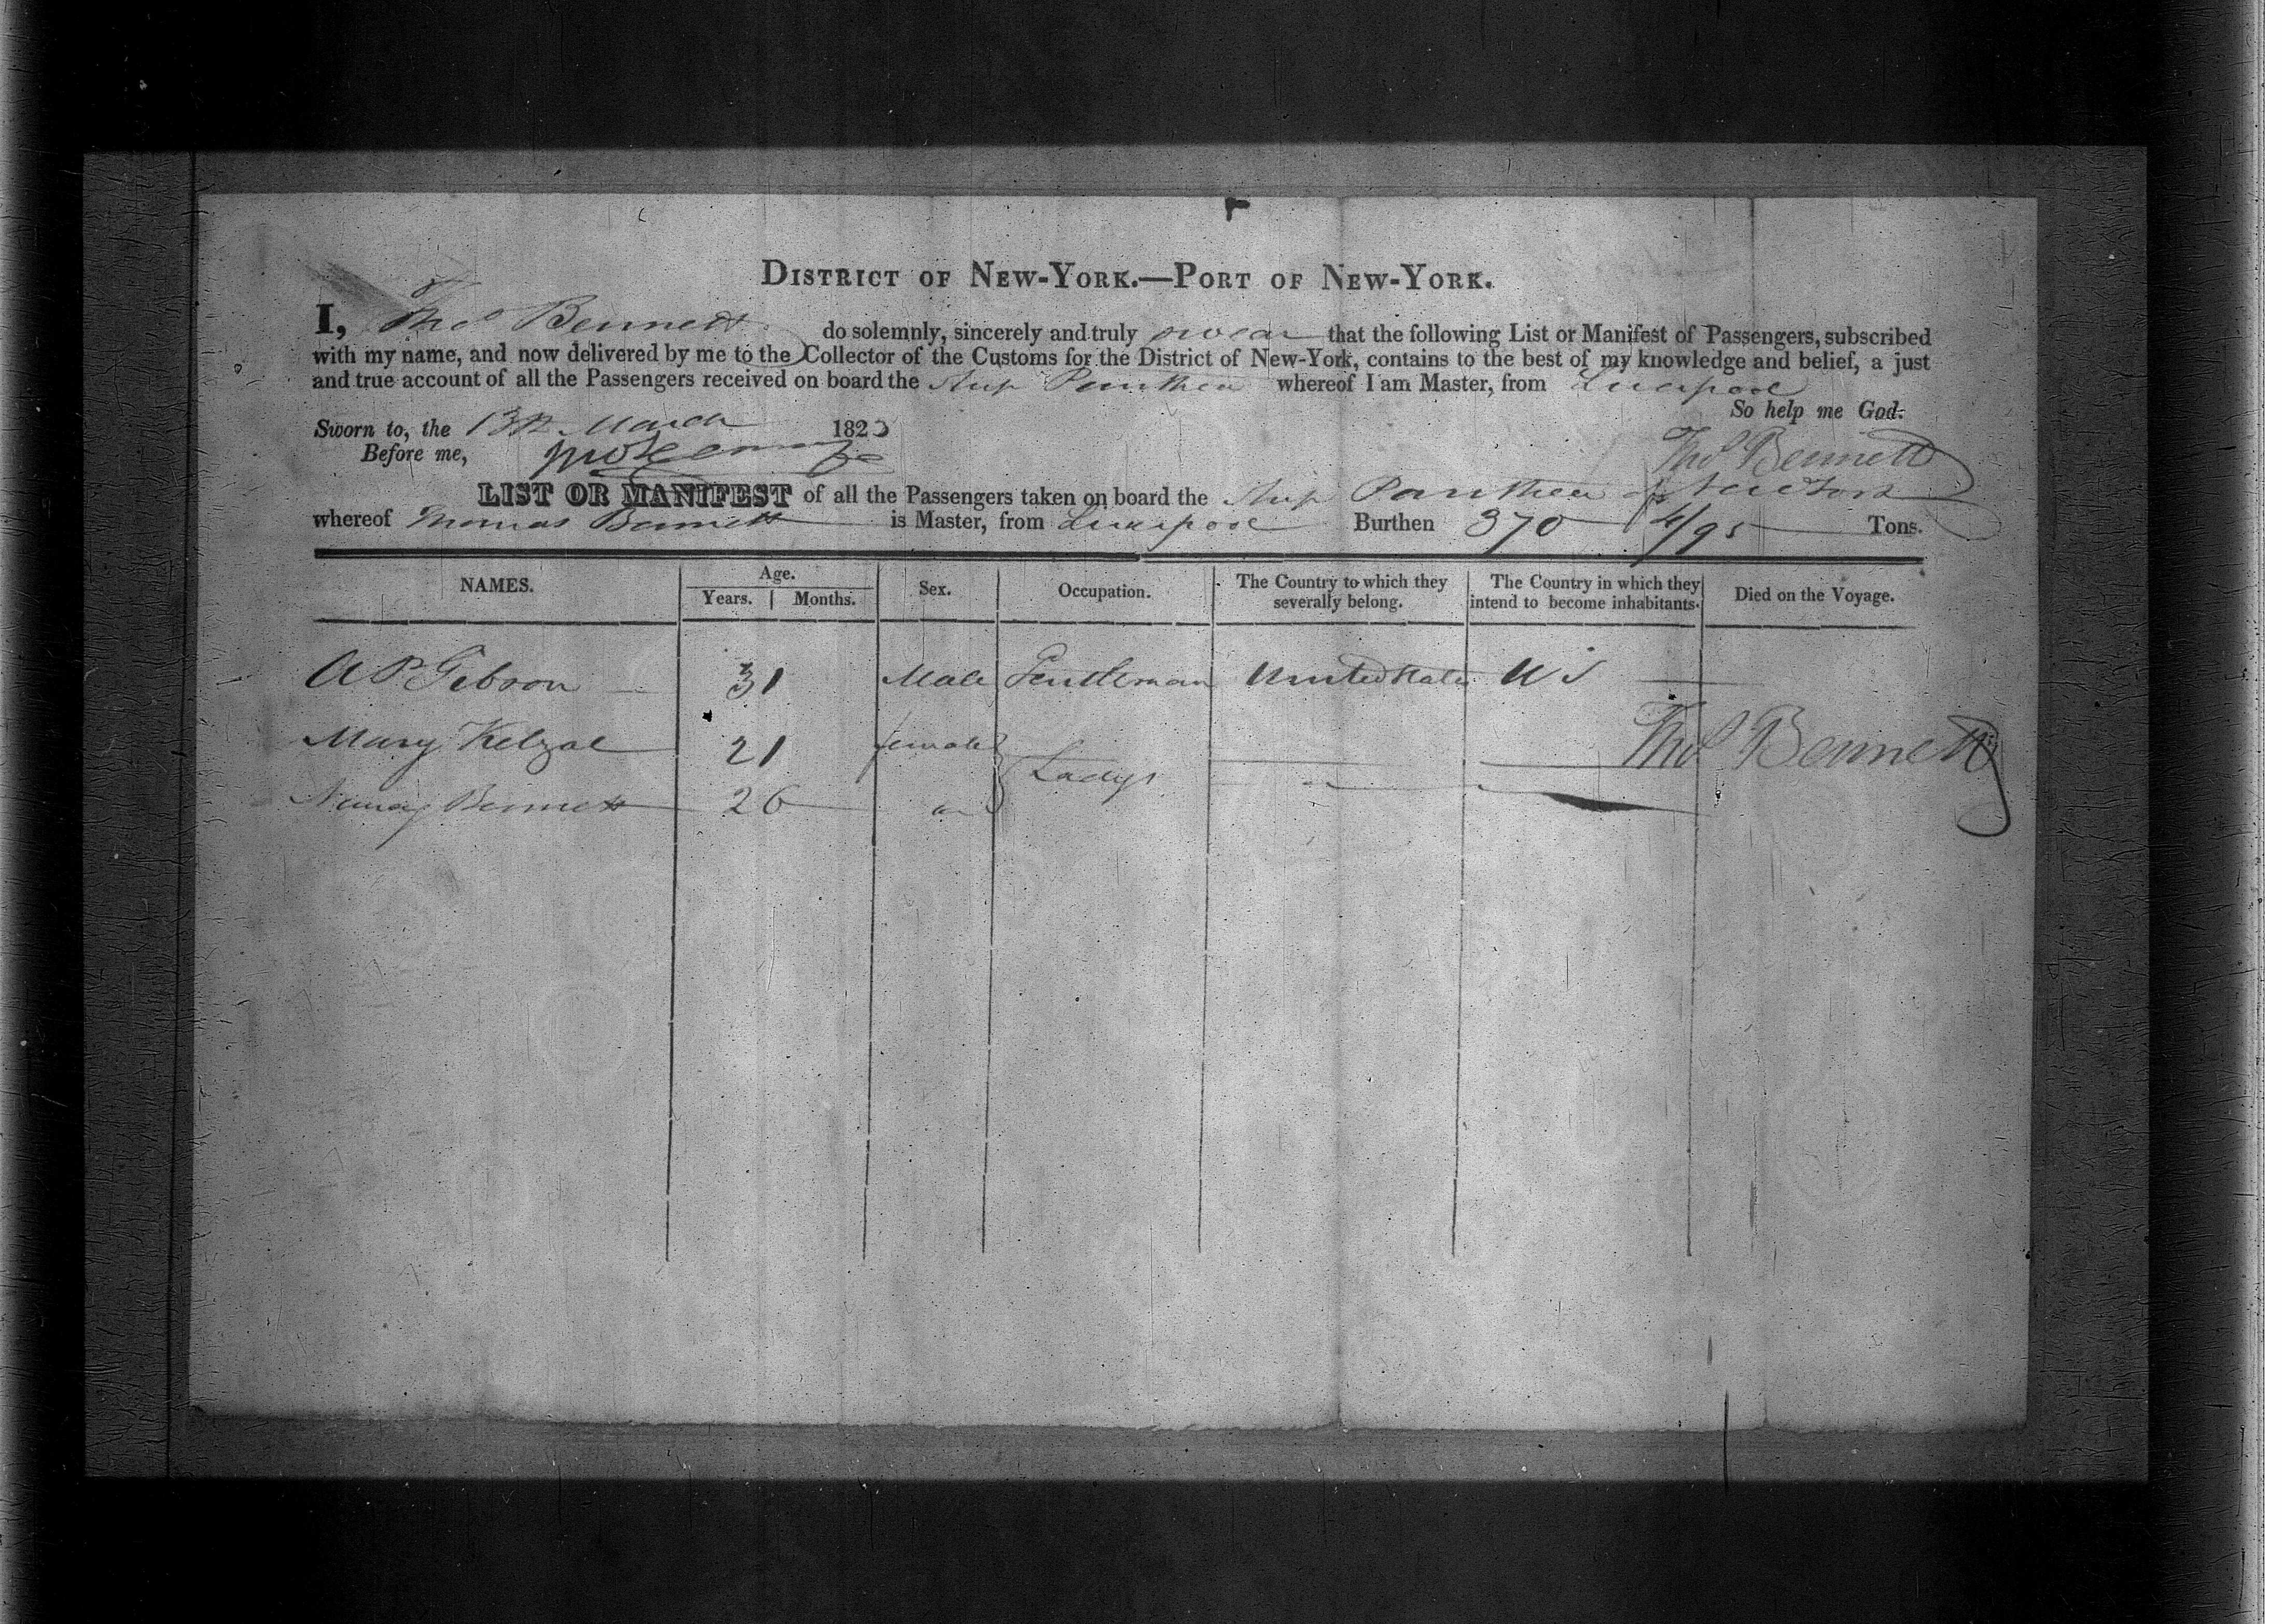 DISTRICT OF NEW-YORK.—PORT OF NEW-YORK.
I, Thos Bennett do solemnly, sincerely and truly swear that the following List or Manifest of Passengers, subscribed
with my name, and now delivered by me to the Collector of the Customs for the District of New-York, contains to the best of my knowledge and belief, a just
and true account of all the Passengers received on board the Ship Panthea whereof I am Master, from Liverpool
So help me God.
Sworn to, the 13th March 1823
Thos Bennett
Before me,
LIST OR MANIFEST of all the Passengers taken on board the Ship Panthea of New York
whereof Thomas Bennett is Master, from Liverpool Burthen 370 4/95 Tons.
NAMES. Age. Years. Months. Sex. Occupation. The Country to which they severally belong. The Country in which they intend to become inhabitants. Died on the Voyage.
A P Gibson 31 Male Gentleman United States U S
Mary 21 female
Thos Bennett
Ladys
Nancy Bennett 26